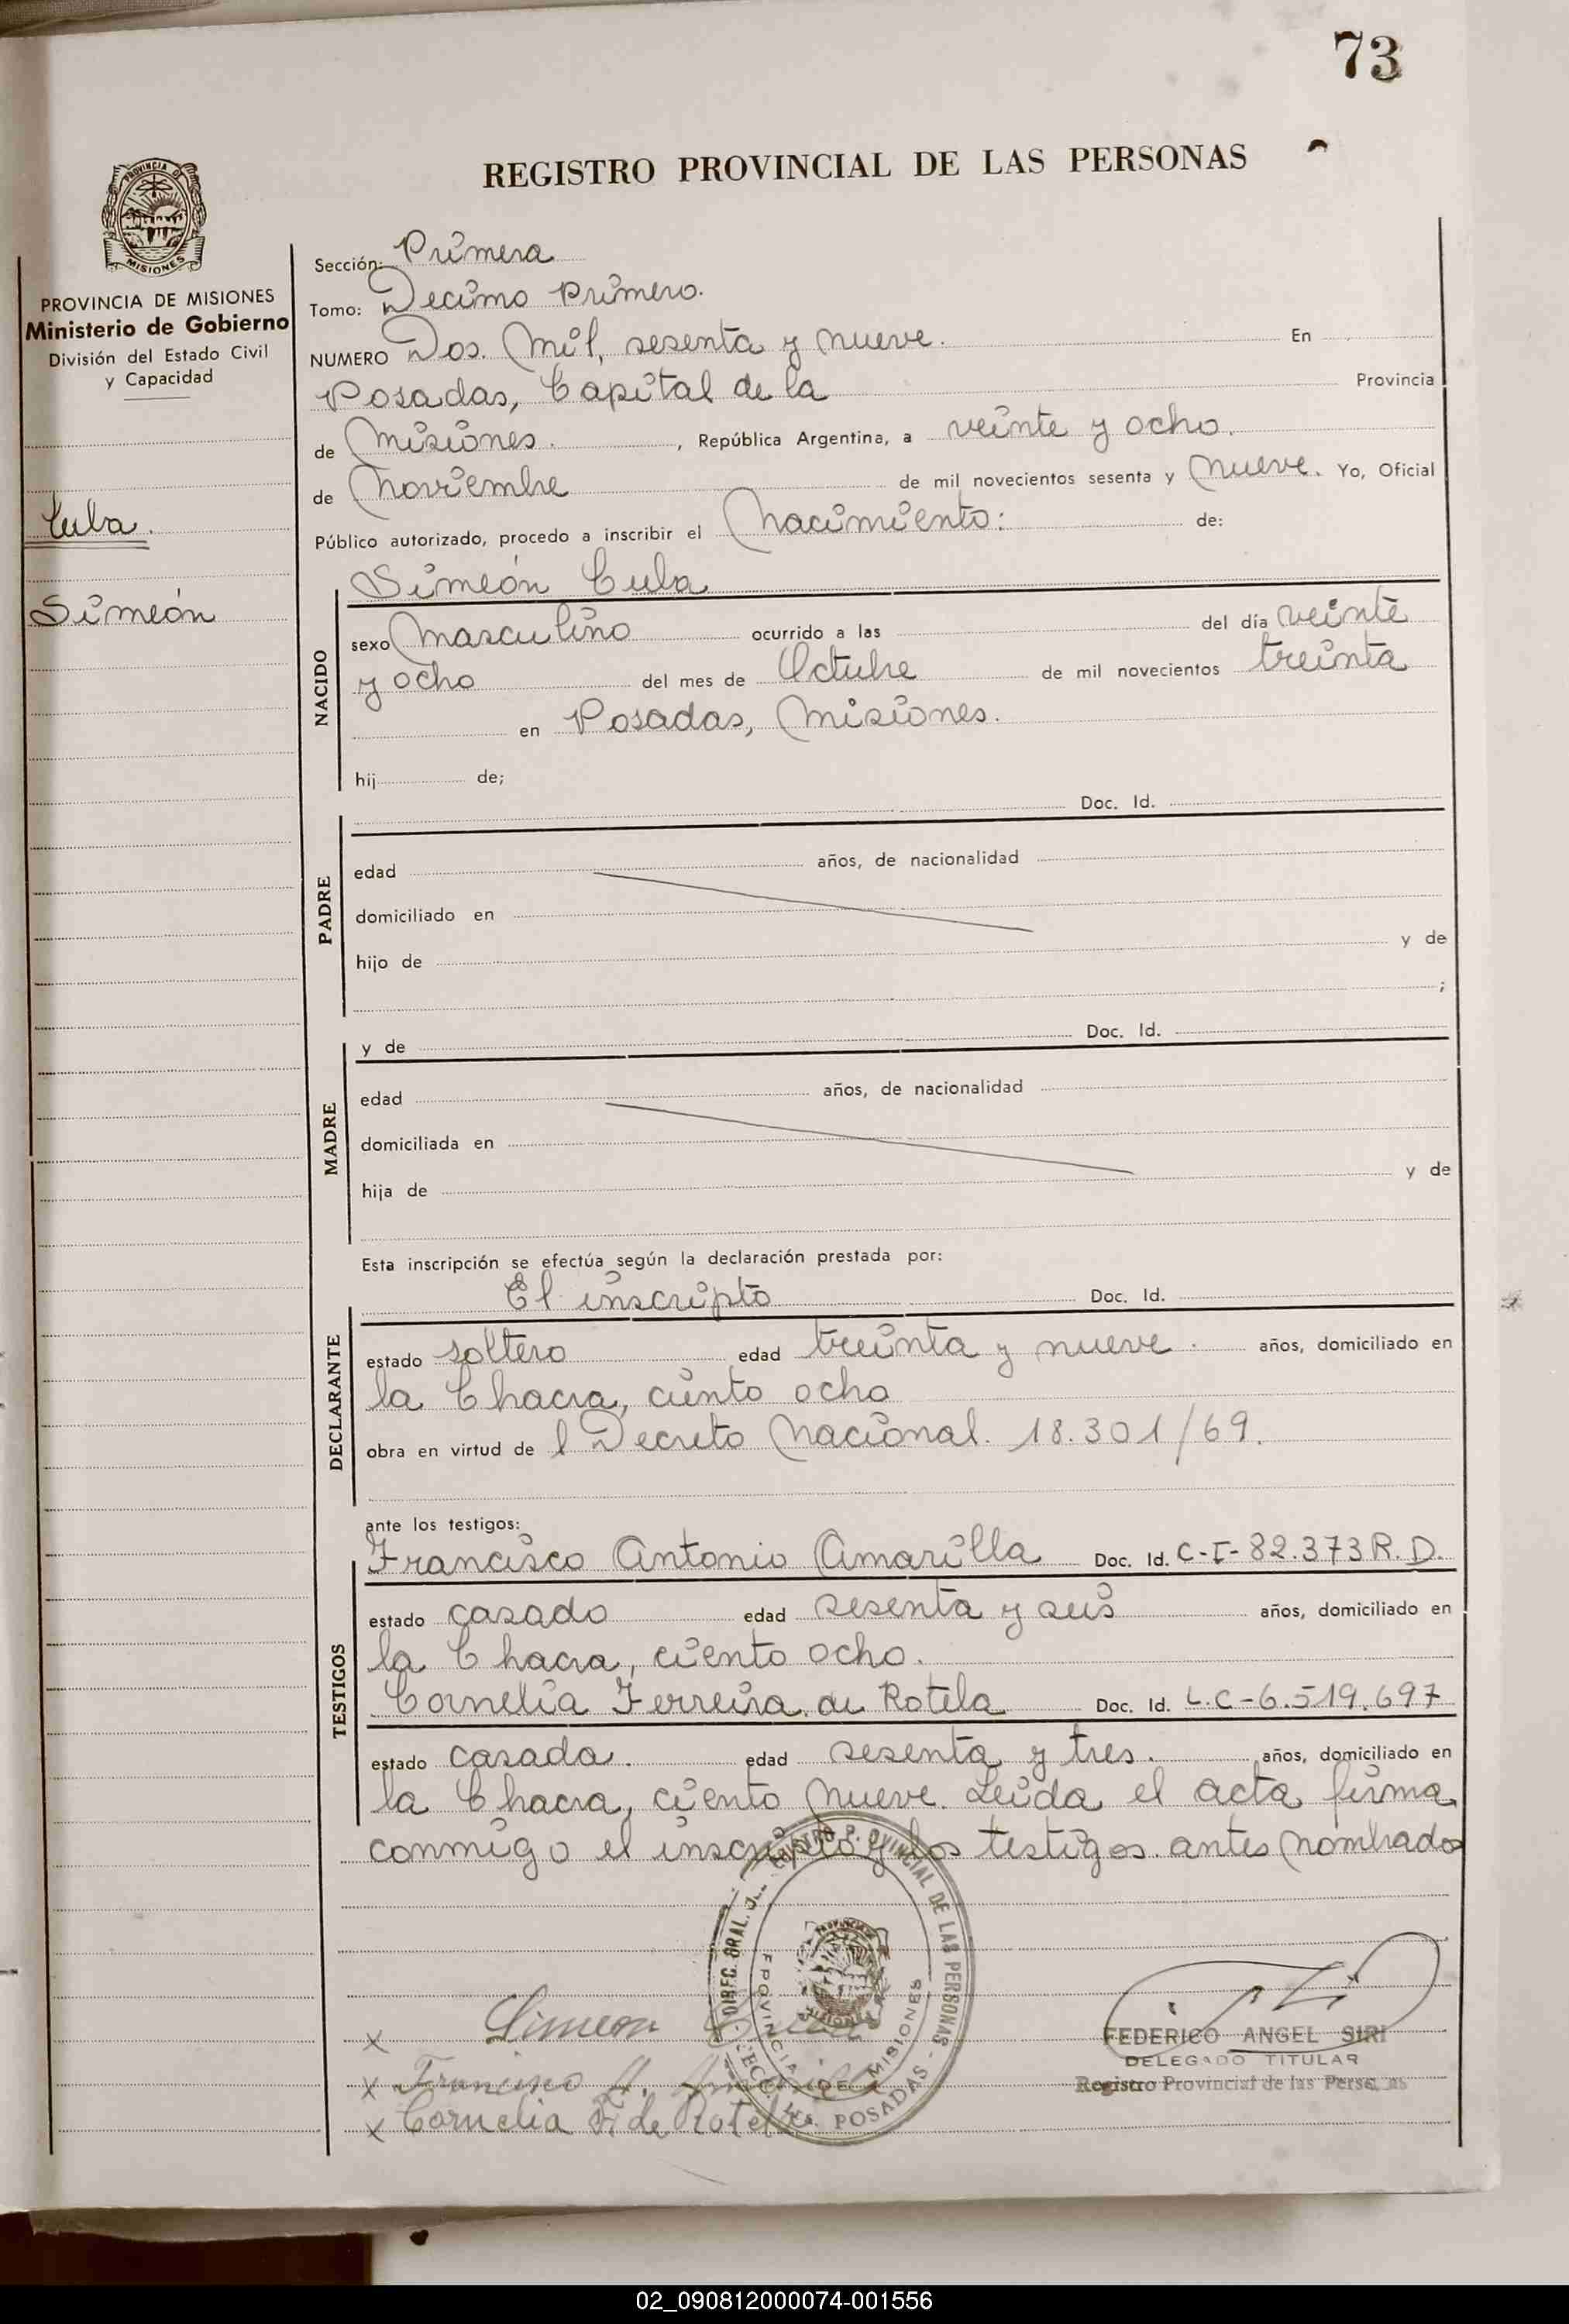 73
REGISTRO PROVINCIAL DE LAS PERSONAS
PROVINCIA DE MISIONES
Ministerio de Gobierno
División del Estado Civil
y Capacidad
Cuba.
Simeón
Sección: Primera
Tomo: Decimo Primero.
NUMERO Dos. Mil, sesenta y nueve. En
Posadas, Capital de la Provincia
de Misiones. , República Argentina, a veinte y ocho.
de Noviembre de mil novecientos sesenta y nueve. Yo, Oficial
Público autorizado, procedo a inscribir el Nacimiento: de:
Simeón Cuba
NACIDO
sexo Masculino ocurrido a las del día veinte
y ocho del mes de Octubre de mil novecientos treinta
en Posadas, Misiones.
hij de;
Doc. Id.
PADRE
edad años, de nacionalidad
domiciliado en
hijo de y de
;
y de Doc. Id.
MADRE
edad años, de nacionalidad
domiciliada en
hija de y de
Esta inscripción se efectúa según la declaración prestada por:
El inscripto Doc. Id.
DECLARANTE
estado soltero edad treinta y nueve. años, domiciliado en
la Chacra, ciento ocho
obra en virtud de l Decreto Nacional. 18.301/69.
ante los testigos:
Francisco Antonio Amarilla Doc. Id. C-I-82.373 R.D.
TESTIGOS
estado casado edad sesenta y seis años, domiciliado en
la Chacra, ciento ocho.
Cornelia Ferreira de Rotela Doc. Id. L.C-6.519.697
estado casada. edad sesenta y tres. años, domiciliado en
la Chacra, ciento nueve. Leida el acta firma
conmigo el inscripto y los testigos antes nombrado
x Simeon Cuba
x Francisco A. Amarilla
x Cornelia F. de Rotela
PROVINCIAL DE LAS PERSONAS - POSADAS
PROVINCIA DE MISIONES
FEDERICO ANGEL SIRI
DELEGADO TITULAR
Registro Provincial de las Personas
02_090812000074-001556